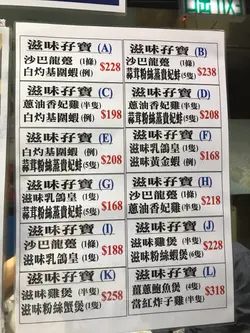 滋味孖寶 (A)
沙巴龍躉 (1條)
白灼基圍蝦 (例)
$238
滋味孖寶 (B)
沙巴龍躉 (1條)
蒜茸粉絲蒸貴妃蚌 (5隻)
$228
滋味孖寶 (C)
蔥油香妃雞 (半隻)
白灼基圍蝦 (例)
$198
滋味孖寶 (D)
蔥油香妃雞 (半隻)
蒜茸粉絲蒸貴妃蚌 (5隻)
$208
滋味孖寶 (E)
白灼基圍蝦 (例)
蒜茸粉絲蒸貴妃蚌 (5隻)
$208
滋味孖寶 (F)
滋味乳鴿皇 (1隻)
滋味黃金蝦 (例)
$168
滋味孖寶 (G)
滋味乳鴿皇 (1隻)
蒜茸粉絲蒸貴妃蚌 (5隻)
$168
滋味孖寶 (H)
沙巴龍躉 (1條)
蔥油香妃雞 (半隻)
$218
滋味孖寶 (I)
沙巴龍躉 (1條)
滋味乳鴿皇 (1隻)
$188
滋味孖寶 (J)
滋味雞煲 (半隻)
滋味粉絲蝦煲 (例)
$228
滋味孖寶 (K)
滋味雞煲 (半隻)
滋味粉絲蟹煲 (1隻)
$258
滋味孖寶 (L)
薑蔥鮑魚煲 (例)
當紅炸子雞 (半隻)
$318